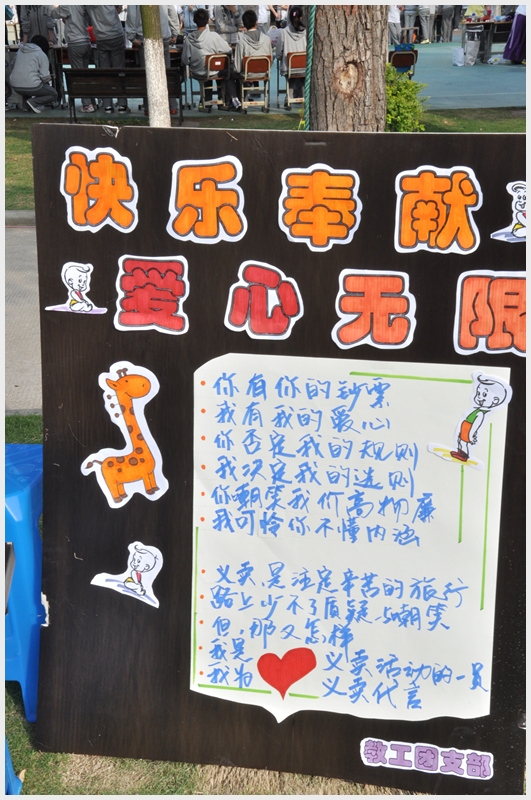 快乐奉献
爱心无限
你有你的钞票
我有我的爱心
你否定我的规则
我决定我的选则
你嘲笑我价高物廉
我可怜你不懂内涵
义卖,是注定辛苦的旅行
路上少不了质疑与嘲笑
但,那又怎样
我是 义卖活动的一员
我为 义卖代言
教工团支部